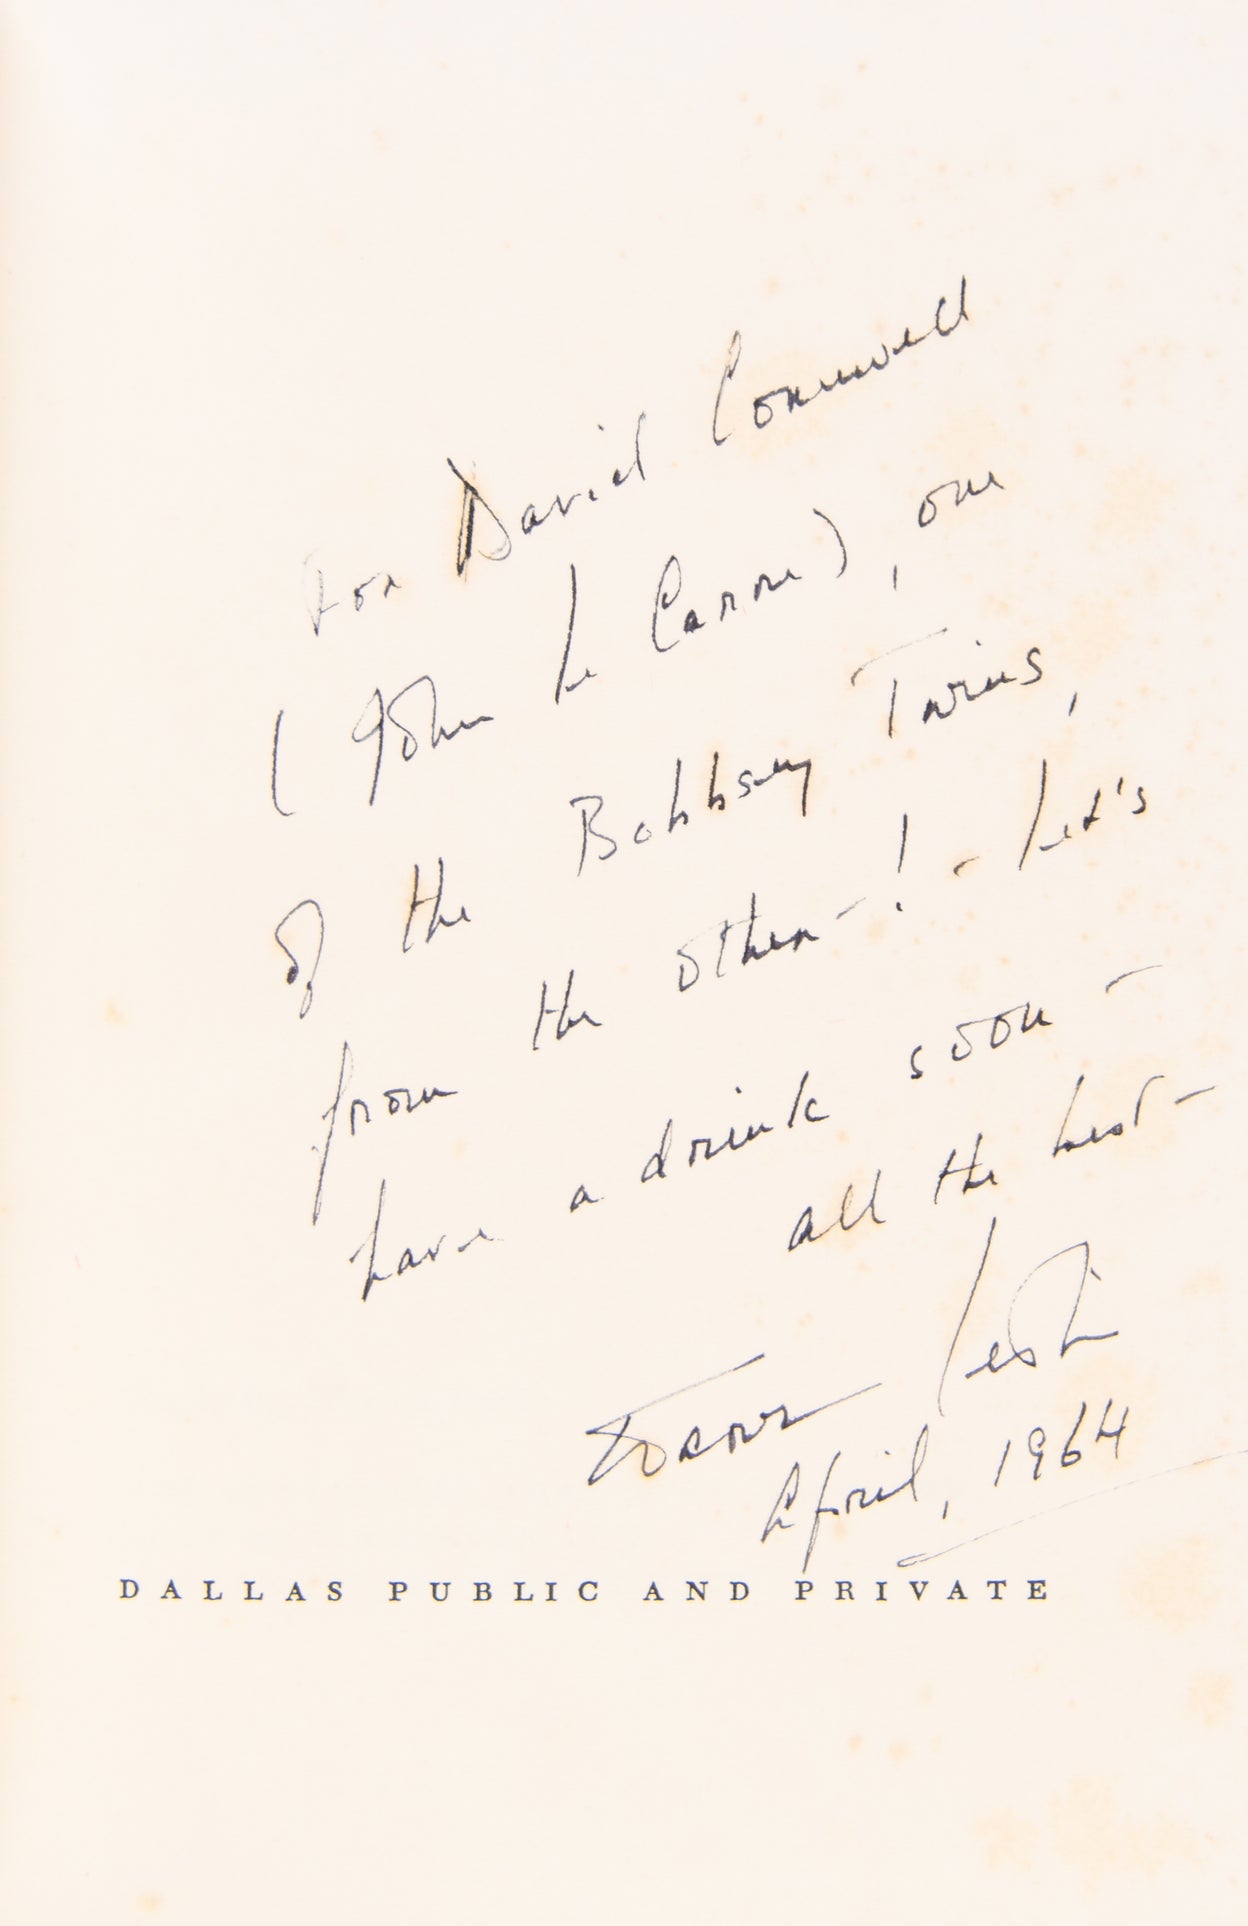 For David Cornwell
(John le Carre), one
of the Bobbsey Twins,
from the other-! - Let's
have a drink soon -
all the best -
Warren Leslie
April, 1964
DALLAS PUBLIC AND PRIVATE